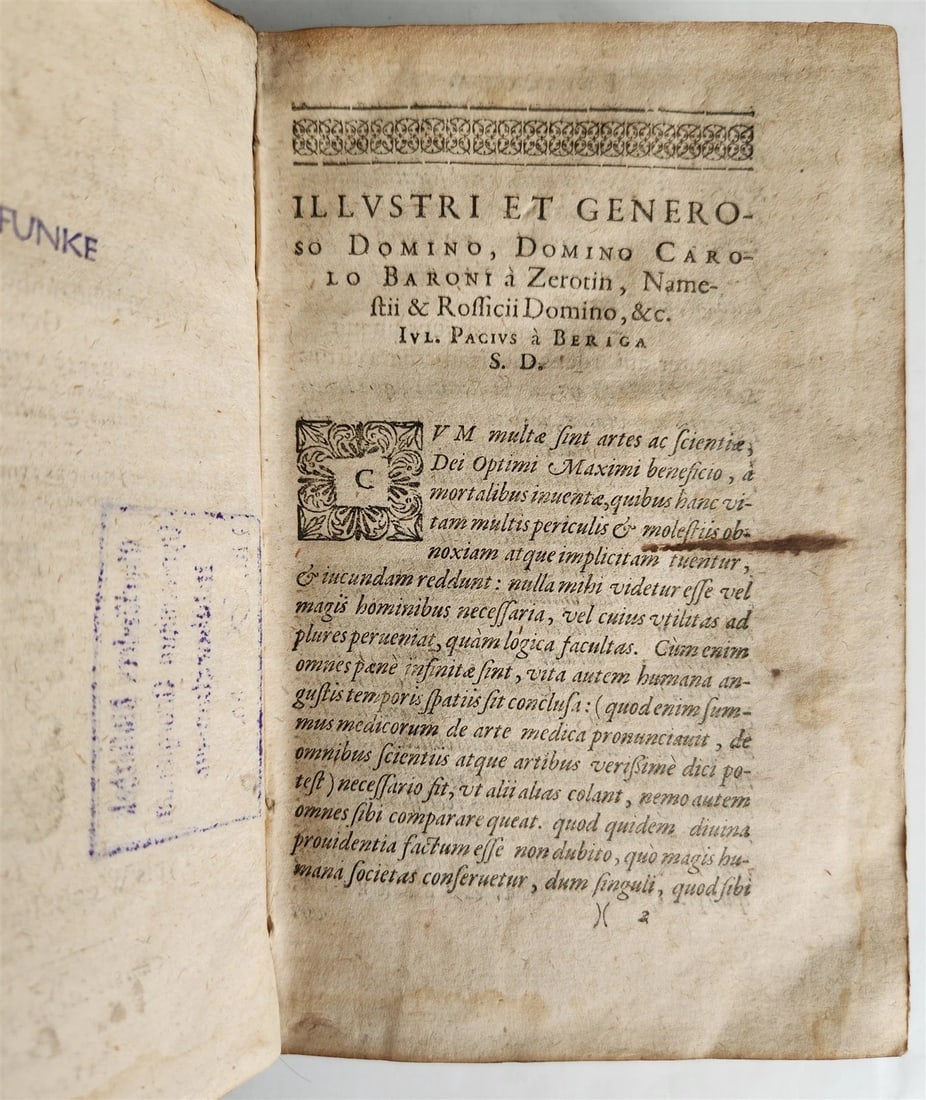 FUNKE
ILLVSTRI ET GENERO-
SO DOMINO, DOMINO CARO-
LO BARONI à Zerotin, Name-
ſtii & Roſſicii Domino, &c.
IVL. PACIVS à BERIGA
S. D.
CVM multæ ſint artes ac ſcientiæ,
Dei Optimi Maximi beneficio, à
mortalibus inuentæ, quibus hanc vi-
tam multis periculis & moleſtiis ob-
noxiam atque implicitam tuentur,
& iucundam reddunt: nulla mihi videtur eſſe vel
magis hominibus neceſſaria, vel cuius vtilitas ad
plures perueniat, quàm lógica facultas. Cùm enim
omnes pænè infinitæ ſint, vita autem humana an-
guſtis temporis ſpatiis ſit concluſa: (quod enim ſum-
mus medicorum de arte medica pronunciauit, de
omnibus ſcientiis atque artibus veriſſimè dici po-
teſt) neceſſario fit, vt alii alias colant, nemo autem
omnes ſibi comparare queat. quod quidem diuina
prouidentia factum eſſe non dubito, quò magis hu-
mana ſocietas conſeruetur, dum ſinguli, quod ſibi
)( 2